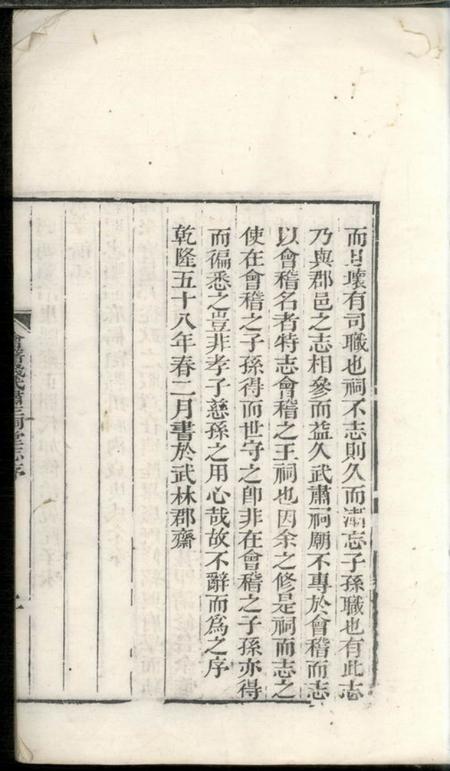 而日壞有司職也祠不志則久而漸忘子孫職也有此志
乃與郡邑之志相參而益久武肅祠廟不專於會稽而志
以會稽名者特志會稽之王祠也因余之修是祠而志之
使在會稽之子孫得而世守之卽非在會稽之子孫亦得
而徧悉之豈非孝子慈孫之用心哉故不辭而為之序
乾隆五十八年春二月書於武林郡齋
會稽錢武肅王祠堂志序